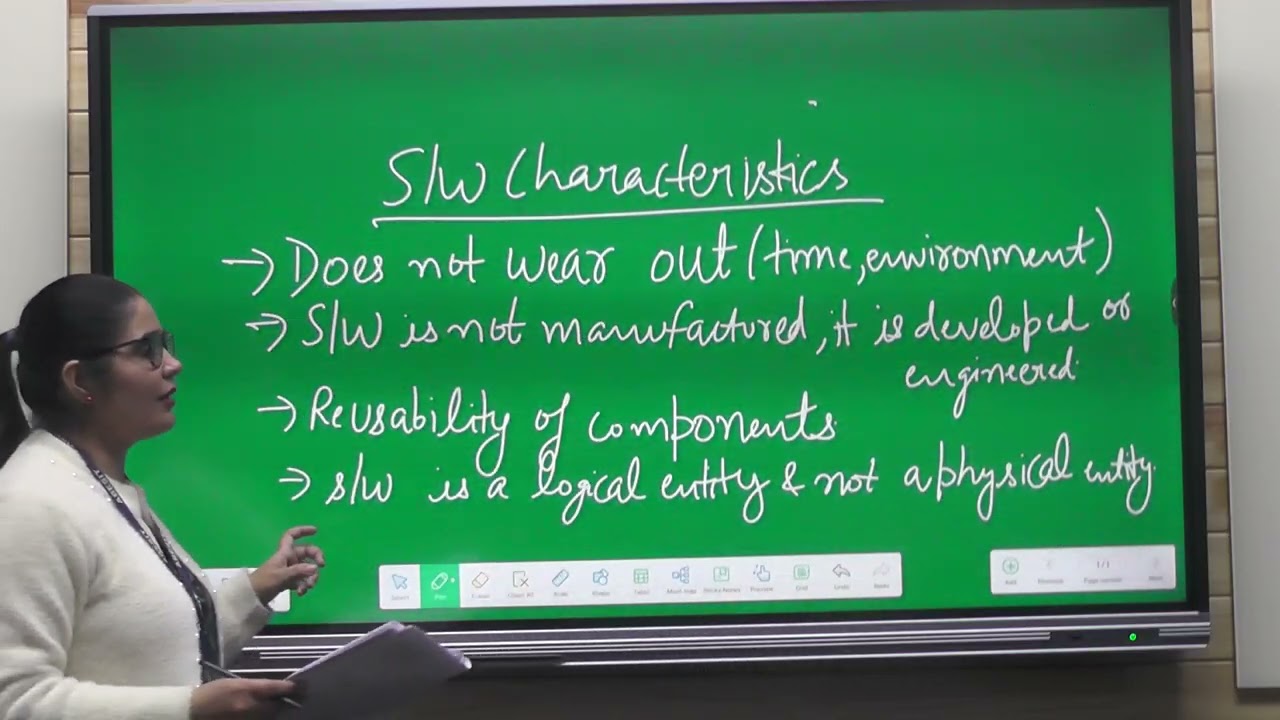 S/W Characteristics
→ Does not wear out (time, environment)
→ S/W is not manufactured, it is developed or
engineered
→ Reusability of components
→ s/w is a logical entity & not a physical entity.
Select Pen Eraser Clear All Ruler Shape Table Mind map Sticky Notes Preview Grid Undo Redo
Add Previous 1/1 Next